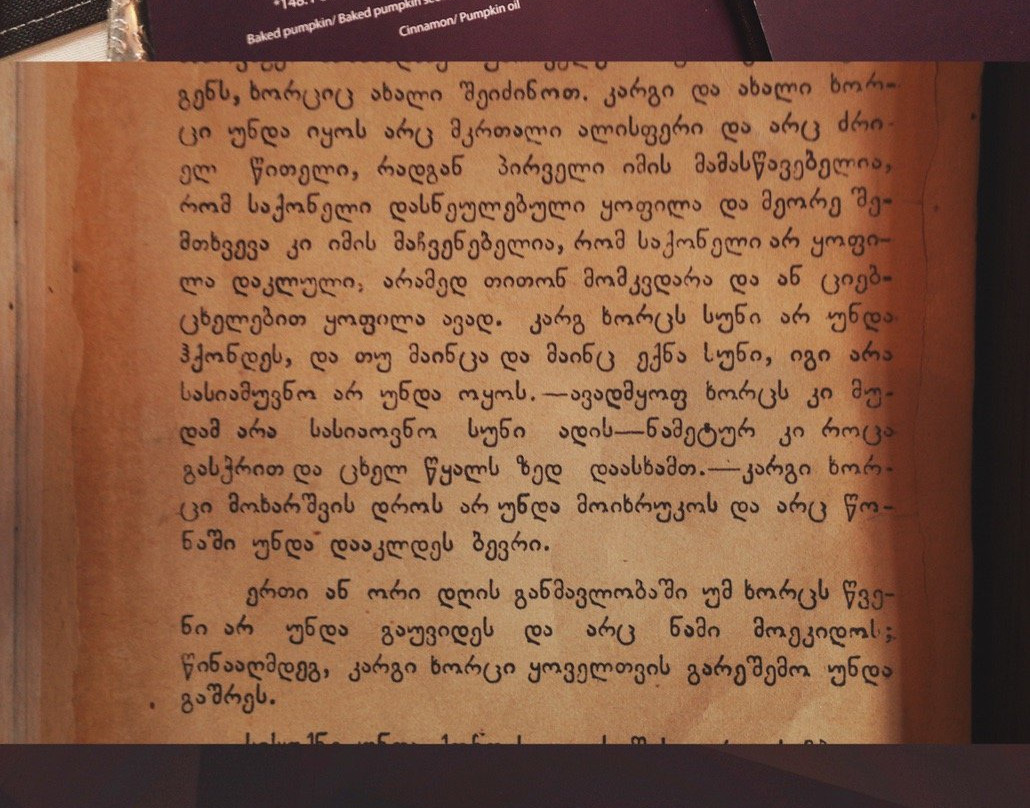 Baked pumpkin/ Baked pumpkin
Cinnamon/ Pumpkin oil
გენს, ხორციც ახალი შეიძინოთ. კარგი და ახალი ხორ-
ცი უნდა იყოს არც მკრთალი ალისფერი და არც ძრი-
ელ წითელი, რადგან პირველი იმის მამასწავებელია,
რომ საქონელი დასნეულებული ყოფილა და მეორე შე-
მთხვევა კი იმის მაჩვენებელია, რომ საქონელი არ ყოფი-
ლა დაკლული, არამედ თითონ მომკვდარა და ან ციებ-
ცხელებით ყოფილა ავად. კარგ ხორცს სუნი არ უნდა
ჰქონდეს, და თუ მაინცა და მაინც ექნა სუნი, იგი არა
სასიამუვნო არ უნდა იყოს.—ავადმყოფ ხორცს კი მუ-
დამ არა სასიაოვნო სუნი ადის—ნამეტურ კი როცა
გასჭრით და ცხელ წყალს ზედ დაასხამთ.—კარგი ხორ-
ცი მოხარშვის დროს არ უნდა მოიხრუკოს და არც წო-
ნაში უნდა დააკლდეს ბევრი.
ერთი ან ორი დღის განმავლობაში უმ ხორცს წვე-
ნი არ უნდა გაუვიდეს და არც ნამი მოეკიდოს;
წინააღმდეგ, კარგი ხორცი ყოველთვის გარეშემო უნდა
გაშრეს.